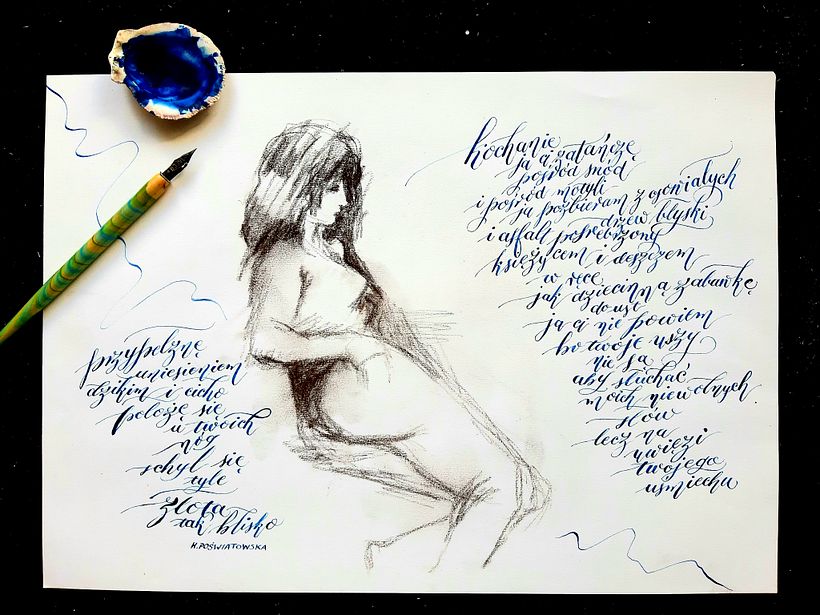 kochanie
ja ci zatańczę
pośród
i pośród motyli
ja pozbieram z
drzew błyski
i asfalt posrebrzony
księżycem i deszczem
w ręce
jak dziecinną zabawkę
do ust
ja ci nie powiem
bo twoje uszy
nie są
aby słuchać
moich niewolnych
słów
lecz na
uwięzi
twojego
uśmiechu
przypełznę
uniesieniem
dzikim i cicho
położę się
u twoich
nóg
schyl się
tyle
złota
tak blisko
H.POŚWIATOWSKA